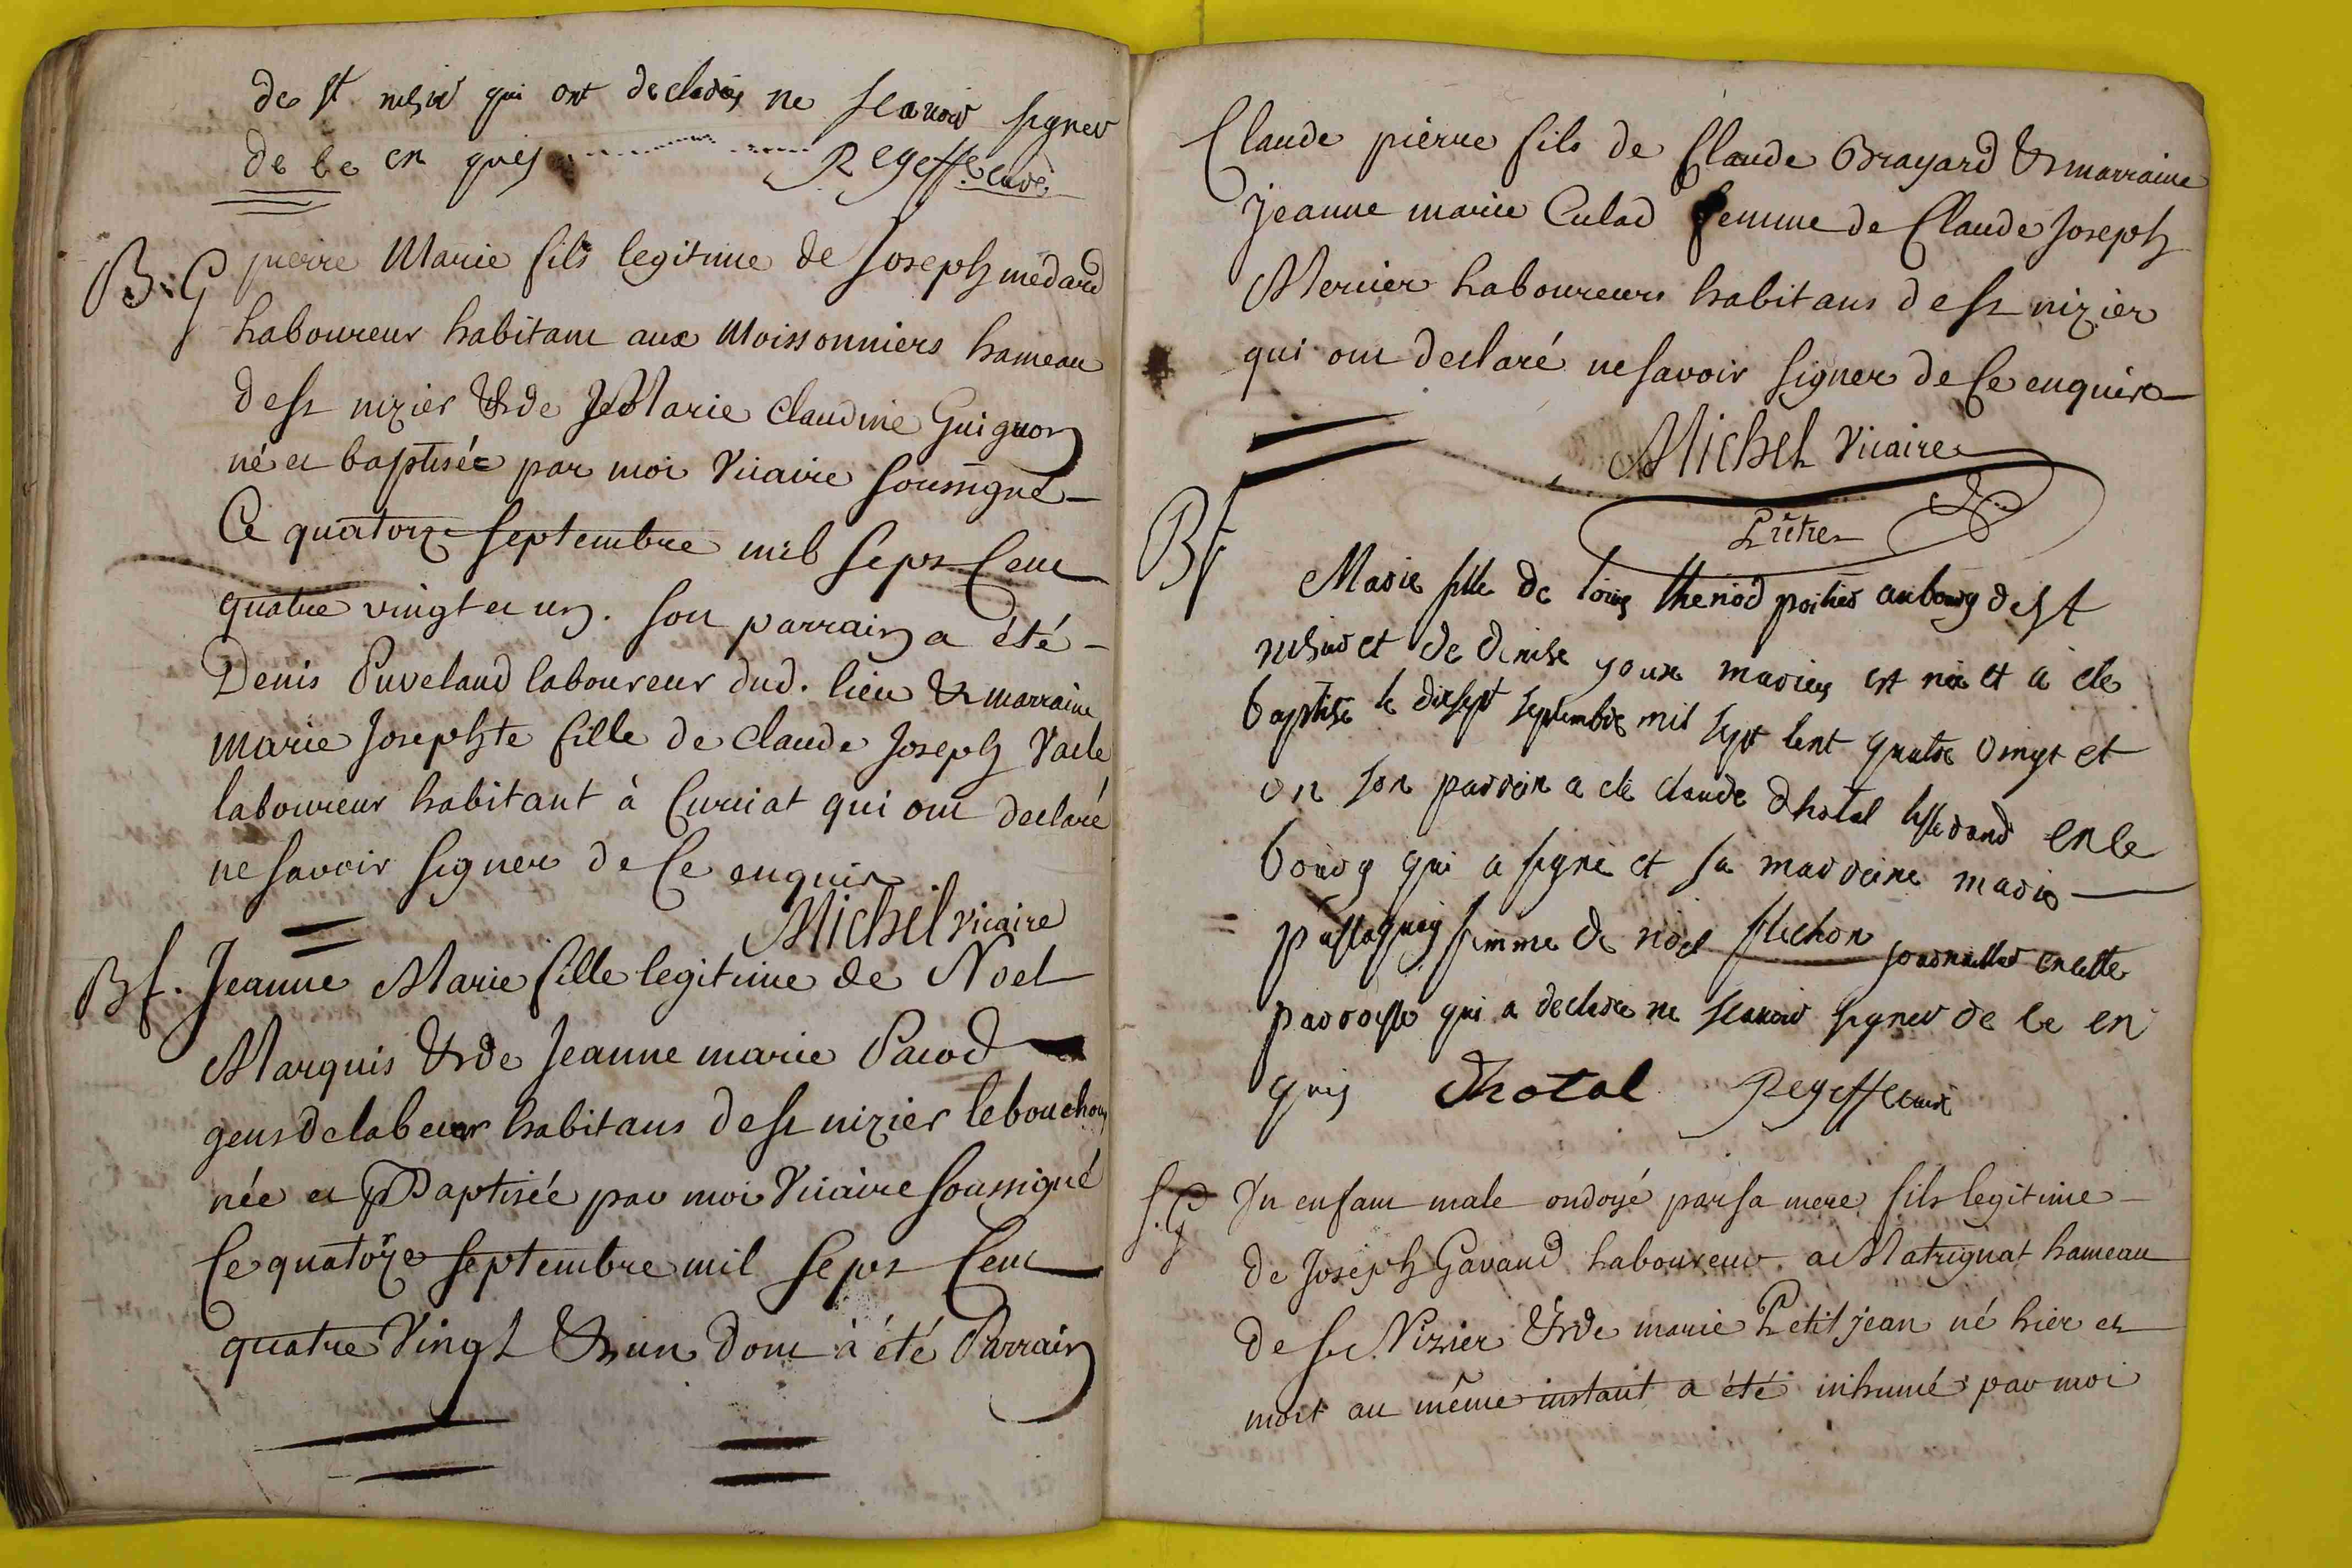 de st nisier qui ont declarés ne scavoir signer
de ce en quis Regeffe curé
B. G pierre Marie fils legitime de Joseph médard
laboureur habitant aux Moissonniers hameau
de st nizier & de Marie Claudine Guignon
né et baptisé par moi Vicaire soussigné
Ce quatorze septembre mil sept Cent
quatre vingt et un. son parrain a été
Denis Puveland laboureur dud. lieu & marraine
marie Josephte fille de claude Joseph Vacle
laboureur habitant à Curciat qui ont declaré
ne savoir signer de Ce enquis
Michel Vicaire
B f. Jeanne Marie fille legitime de Noel
Marquis & de Jeanne marie Pacod
gens de labeur habitans de st nizier le bouchoux
née et Baptisée par moi Vicaire soussigné
Ce quatorze septembre mil sept Cent
quatre Vingt & un dont à été Parrain
Claude pierre fils de Claude Brayard & marraine
Jeanne marie Culad femme de Claude Joseph
Mercier laboureurs habitans de st nizier
qui ont declaré ne savoir signer de Ce enquis
Michel Vicaire
Prêtre
B f Marie fille de louis thenod poitier au bourg de st
nisier et de denise joux mariés est née et a ete
baptisé le dixsept septembre mil sept cent quatre vingt et
un son parrein a ete claude dhotal tisserand en ce
bourg qui a signé et sa marreine marie
femme de noel flechon journallier en cette
parroisse qui a declarée ne scavoir signer de ce en
quis Dhotal Regeffe curé
S. G Un enfant male ondoyé par sa mere fils legitime
de Joseph Gavand laboureur a Matrignat hameau
de st Nizier & de marie Petitjean né hier et
mort au même instant a été inhumé par moi